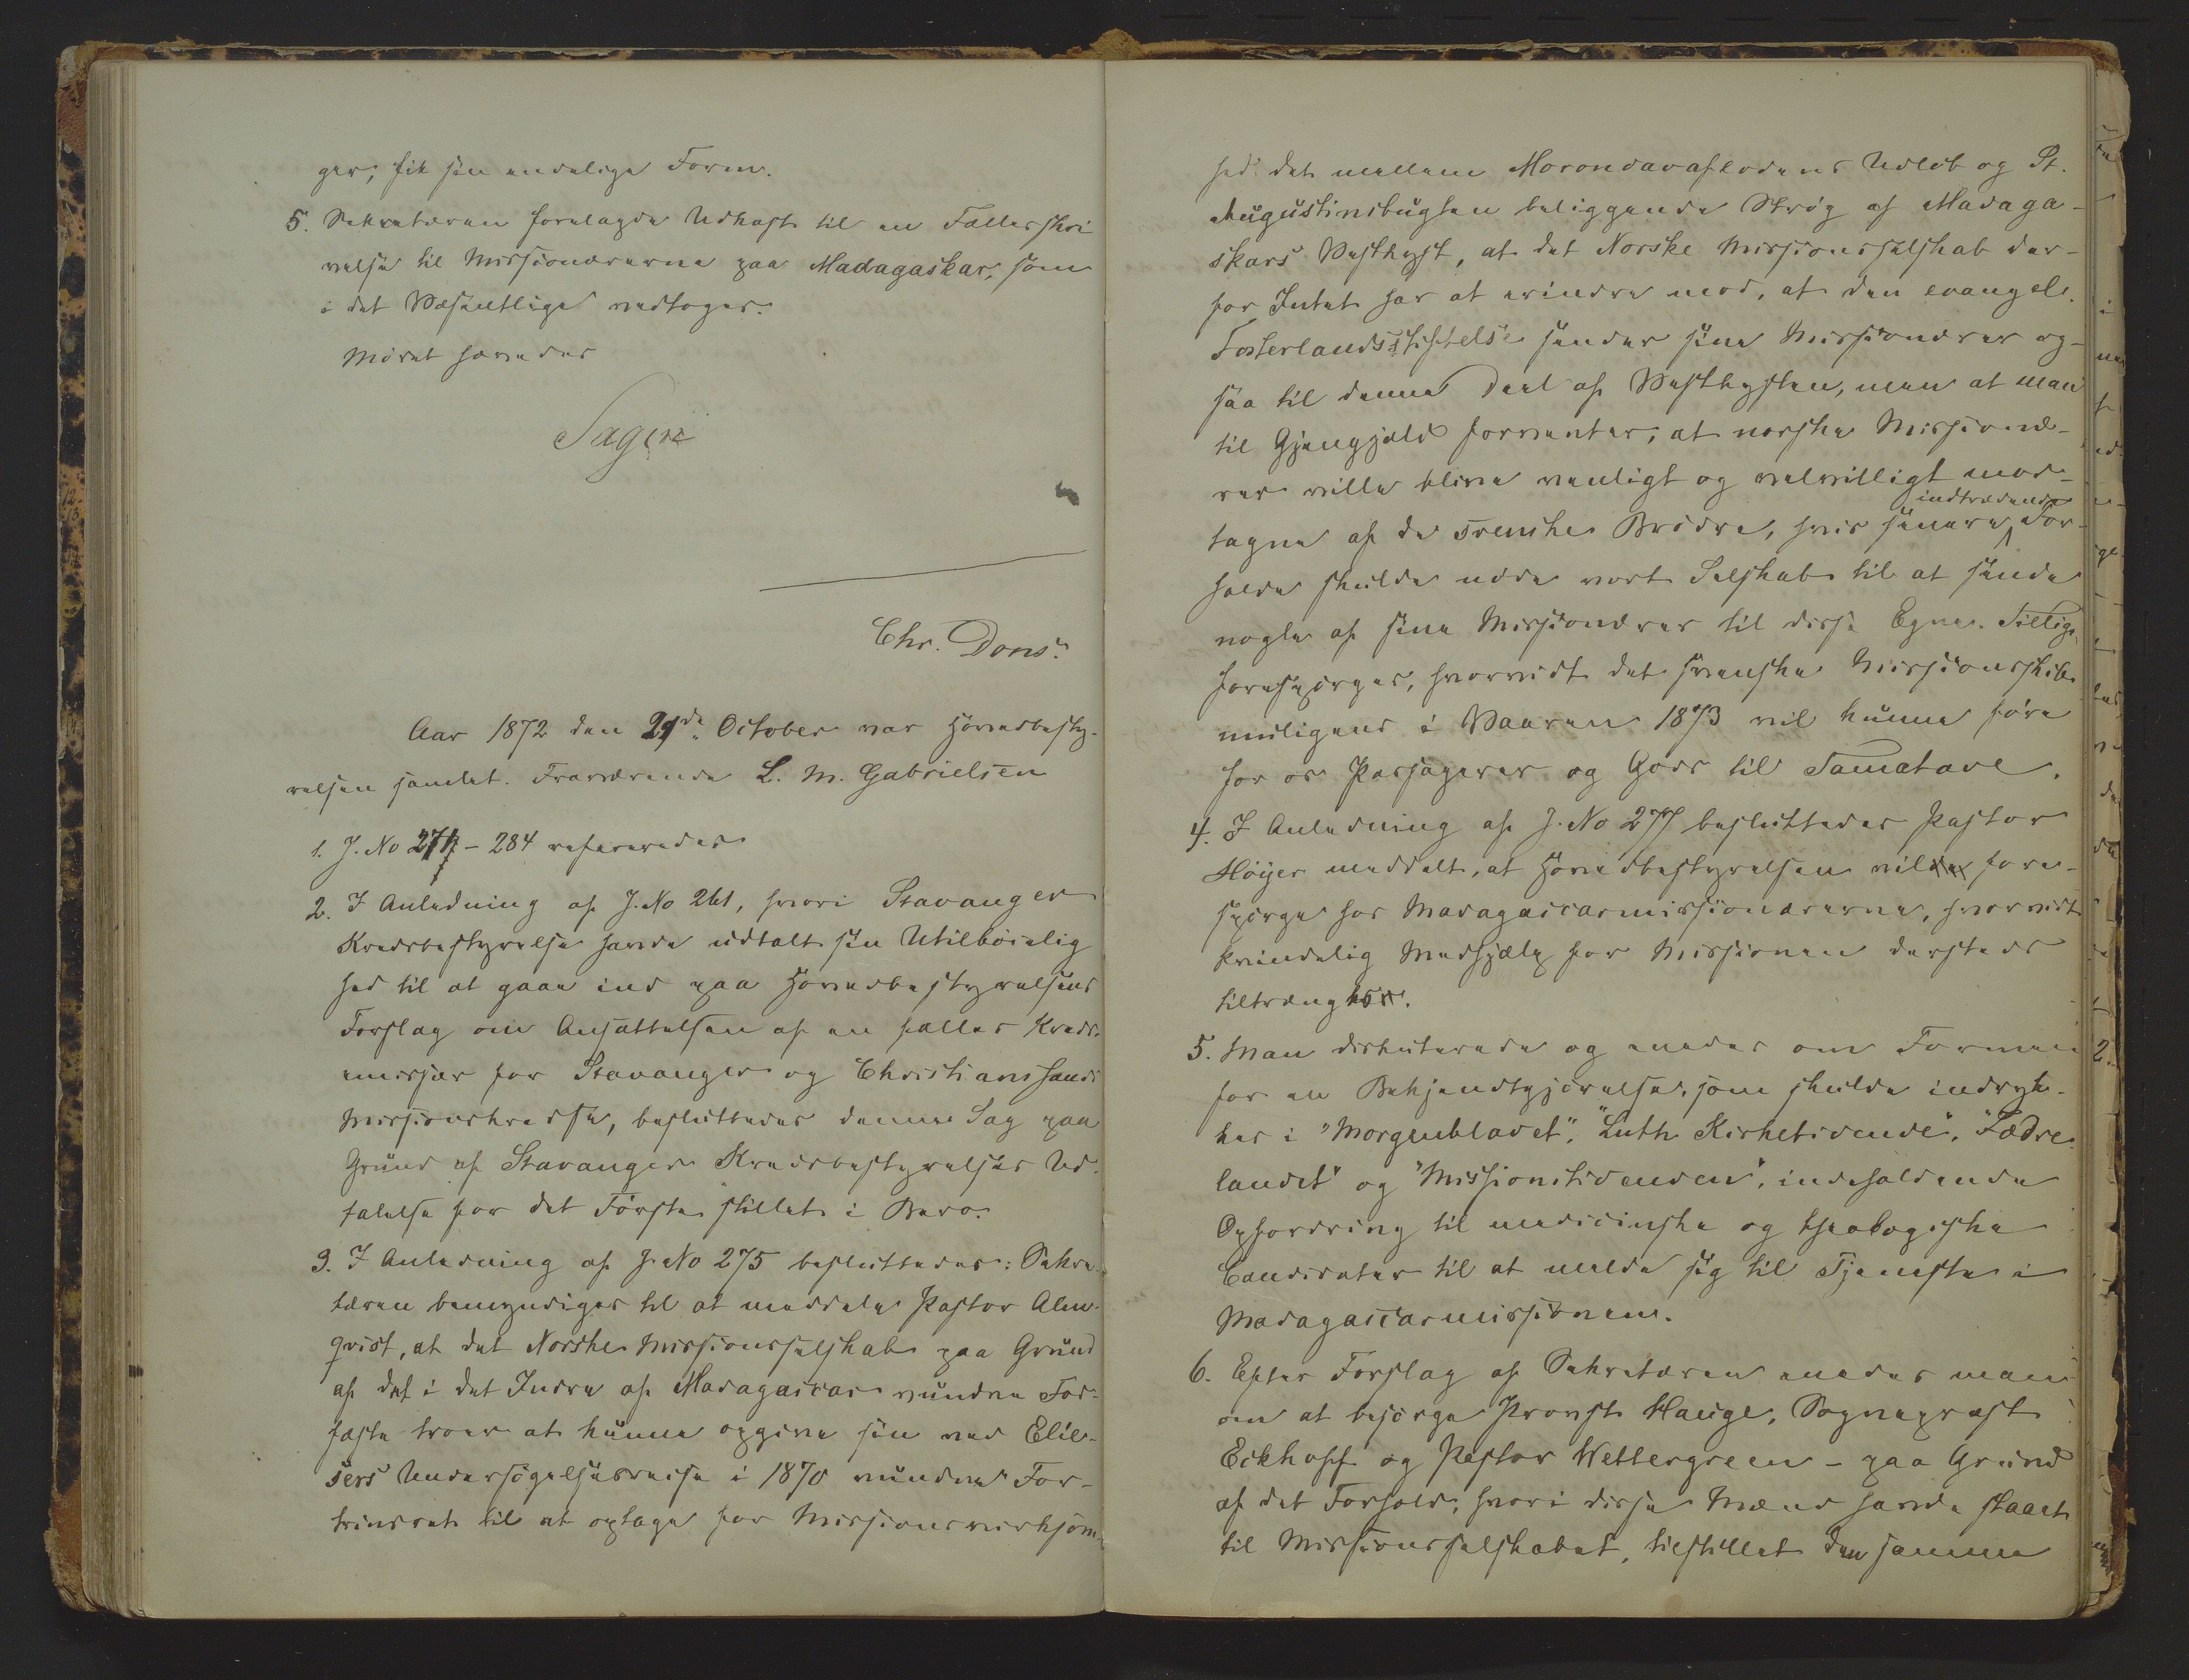 ger, fik sin endelige Form.
5. Sekretæren forelagde Udkast til en Fællesskri
velse til Missionærerne paa Madagaskar, som
i det Væsentlige vedtoges.
Mödet hævedes
Chr. Dons.
Aar 1872 den 21de October var Hovedbesty-
relsen samlet. Fraværende L. M. Gabrielsen
1. J. No 274 - 284 refereredes
2. I Anledning af J. No 261, hvori Stavanger
Kredsbestyrelse havde udtalt sin Utilböielig
hed til at gaae ind paa Hovedbestyrelsens
Forslag om Ansættelsen af en fælles Kreds-
emissær for Stavanger og Christianssands
Missionskredse, besluttedes denne Sag paa
Grund af Stavanger Kredsbestyrelses Ud-
talelse for det Förste stillet i Bero.
3. I Anledning af J. No 275 besluttedes: Sekre-
tæren bemyndiges til at meddele Pastor Alm-
qvist, at det Norske Missionsselskab paa Grund
af det i det Indre af Madagascar vundne Fod-
fæste troer at kunne opgive sin ved Elie-
sers Undersögelsesreise i 1870 vundne For-
trinsret til at optage for Missionsvirksom-
hed det mellem Morondavaflodens Udlöb og St.
Augustinsbugten beliggende Strög af Madaga-
skars Vestkyst, at det Norske Missionsselskab der-
for Intet har at erindre mod, at den evangel.
Fosterlandsstiftelse sender sine Missionærer og-
saa til denne Deel af Vestkysten, men at man
til Gjengjæld forventer, at norske Missionæ-
rer ville blive venligt og velvilligt mod-
tagne af de svenske Brödre, hvis senere indtrædende For-
holde skulde nöde vort Selskab til at sende
nogle af sine Missionærer til disse Egne. Tillige
forespörges, hvorvidt det svenske Missionsskib
muligens i Vaaren 1873 vil kunne före
for os Passagerer og Gods til Tamatave.
4. I Anledning af J. No 277 besluttedes Pastor
Höyer meddelt, at Hovedbestyrelsen vil fore-
spörge hos Madagascarmissionærerne, hvorvidt
kvindelig Medhjælp for Missionen dersteds
tiltrænges.
5. Man diskuterede og enedes om Formen
for en Bekjendtgjörelse, som skulde indryk-
kes i "Morgenbladet", "Luth. Kirketidende", "Fædre-
landet" og "Missionstidenden", indeholdende
Opfordring til medicinske og theologiske
Candidater til at melde sig til Tjeneste i
Madagascarmissionen.
6. Efter Forslag af Sekretæren enedes man
om at besörge Provst Hauge, Sognepræst
Eckhoff og Pastor Wettergreen - paa Grund
af det Forhold, hvori disse Mænd havde staaet
til Missionsselskabet, tilstillet den samme